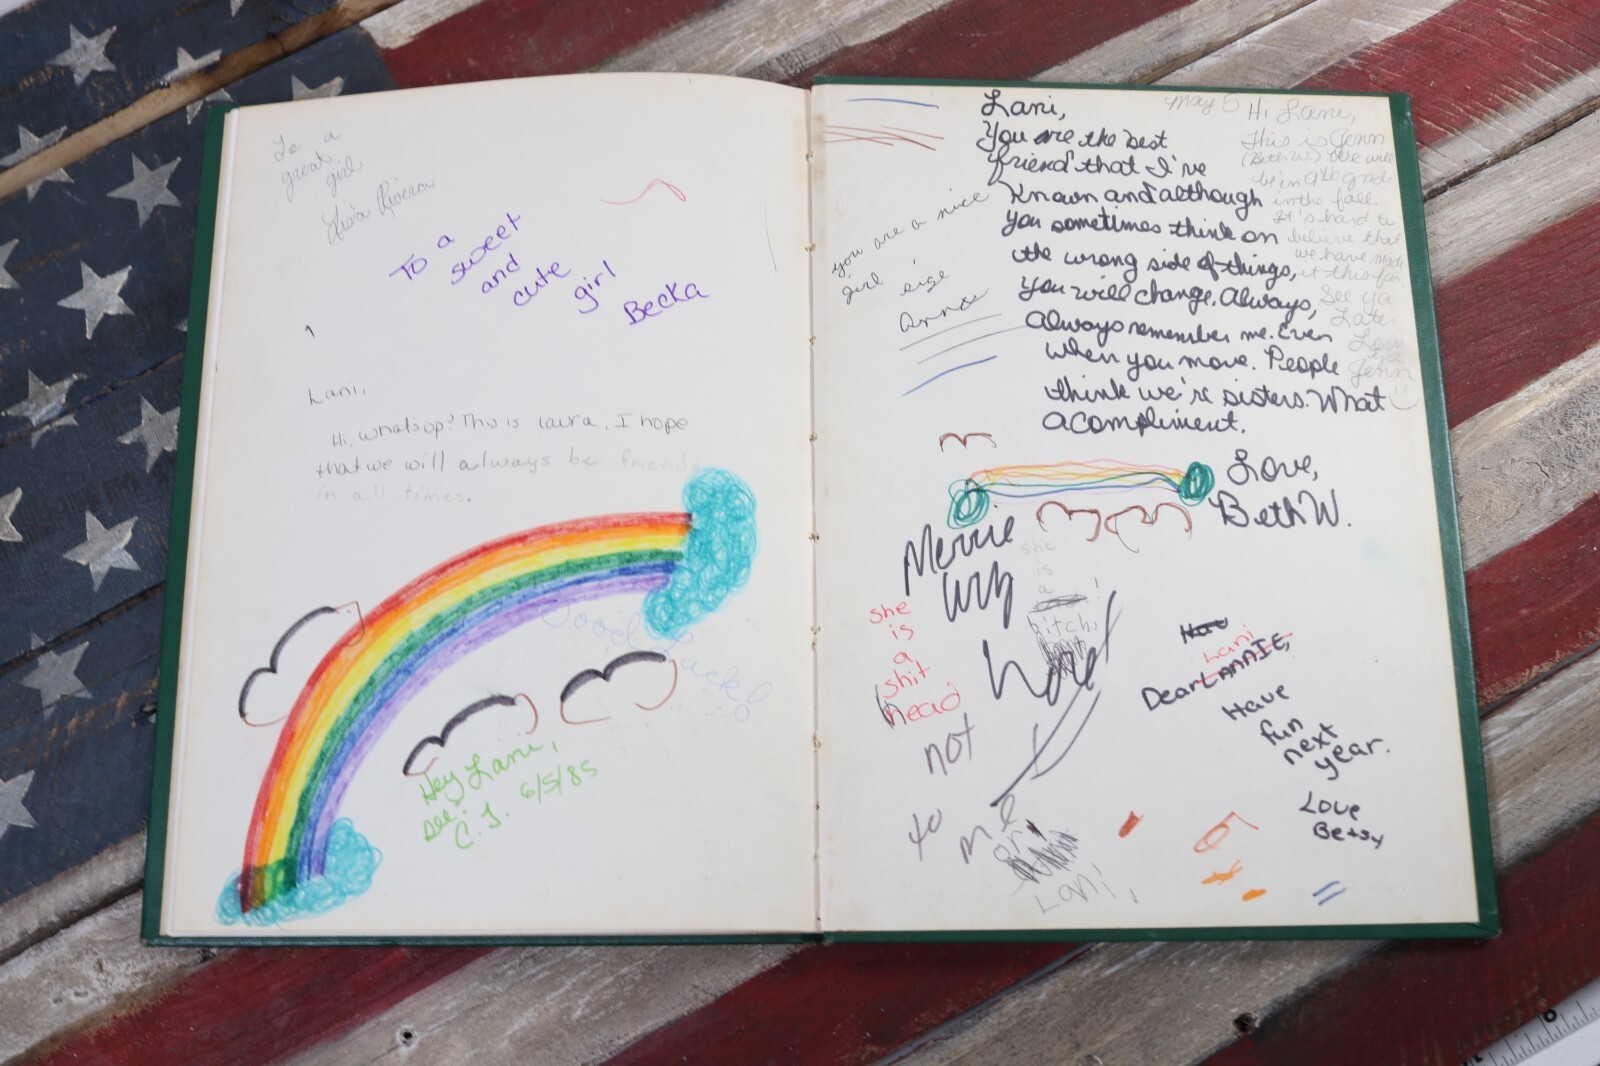 To a
great
girl
Lisa Rivera
To a
sweet
and
cute
girl
Becka
Lani,
Hi, what's up? This is laura. I hope
that we will always be friends
in all times.
Good Luck!
Hey Lani,
C.J. 6/5/85
you are a nice
girl
Lani,
You are the best
friend that I've
known and although
you sometimes think on
the wrong side of things,
you will change. Always,
Always remember me. Even
when you move. People
think we're sisters. What
a compliment.
Love,
Beth W.
May 5
Hi Lani,
This is Jenn
(Beth W.) We will
be in 9th grade
in the fall.
It's hard to
believe that
we have made
it this far
See ya
Later
Love
Jenn
Merrie
she
is
a
bitch,
she
is
a
shit
head
not
to
me
or
Lani,
Lani
Dear LANNIE,
Have
fun
next
year.
Love
Betsy